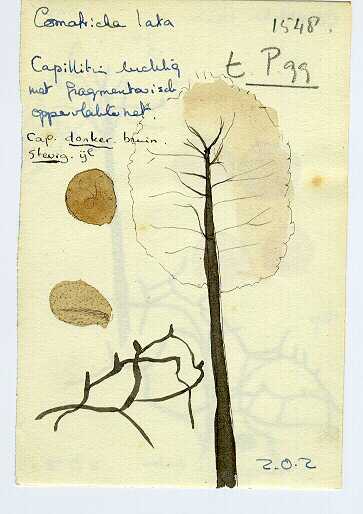 Comatricha lata
1548.
t. Pgg
Capillitium luchtig
met fragmentarisch
oppervlaktenet.
Cap. donker bruin.
Stevig. ijl
2.0.2